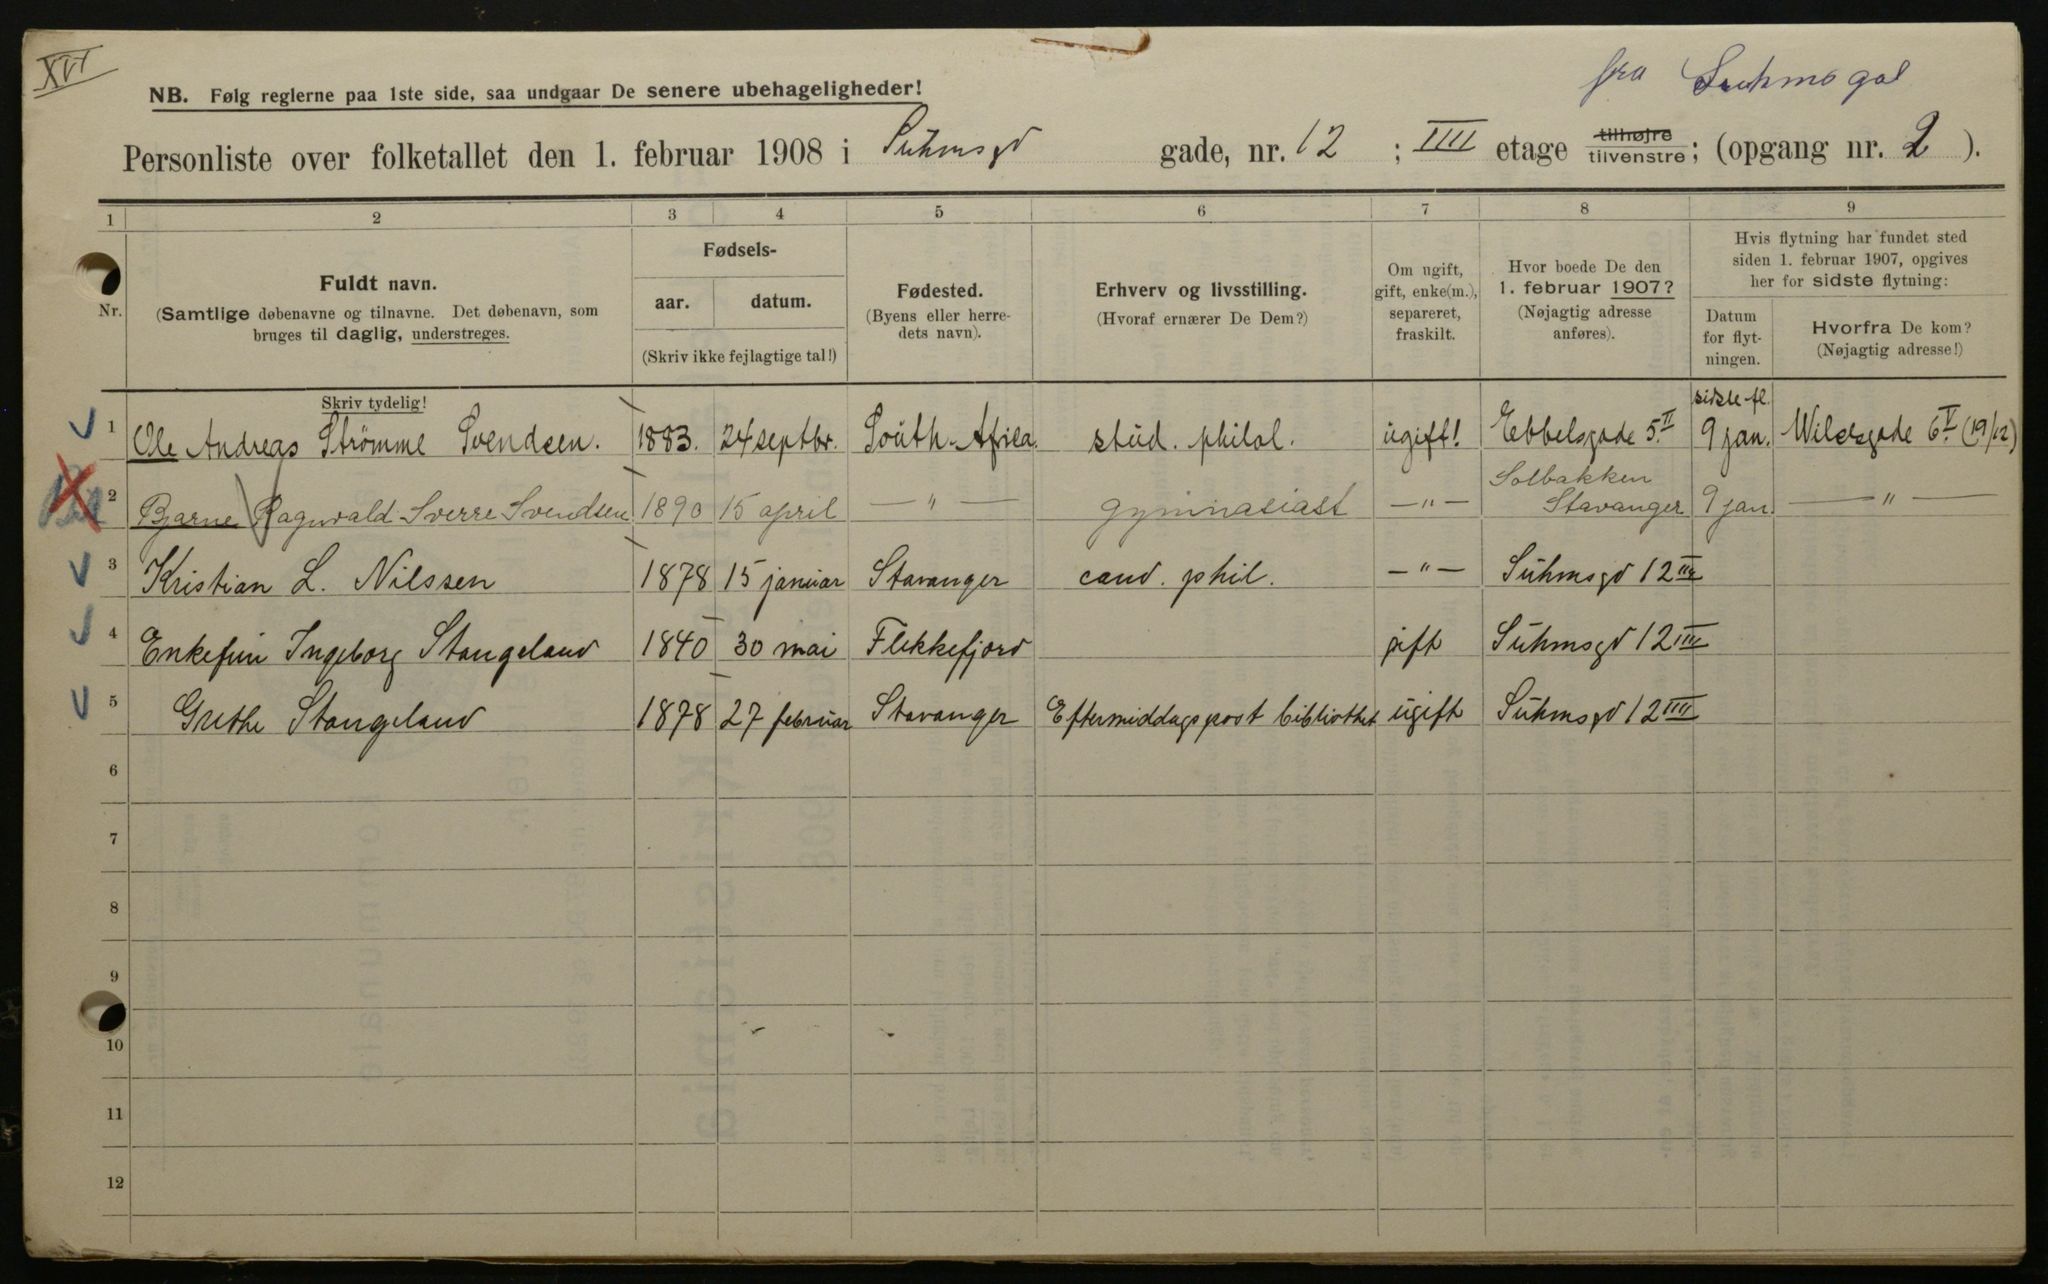 XVI
fra Suhmsgd
NB. Følg reglerne paa 1ste side, saa undgaar De senere ubehageligheder!
Personliste over folketallet den 1. februar 1908 i Suhmsgd gade, nr. 12 ; IIII etage tilhøjre tilvenstre; (opgang nr. 2 ).
1 2 3 4 5 6 7 8 9
Nr.
Fuldt navn.
(Samtlige døbenavne og tilnavne. Det døbenavn, som
bruges til daglig, understreges.
Skriv tydelig!
Fødsels-
aar. datum.
(Skriv ikke fejlagtige tal!)
Fødested.
(Byens eller herre-
dets navn).
Erhverv og livsstilling.
(Hvoraf ernærer De Dem?)
Om ugift,
gift, enke(m.),
separeret,
fraskilt.
Hvor boede De den
1. februar 1907?
(Nøjagtig adresse
anføres).
Hvis flytning har fundet sted
siden 1. februar 1907, opgives
her for sidste flytning:
Datum
for flyt-
ningen.
Hvorfra De kom?
(Nøjagtig adresse!)
sidste fl.
1 Ole Andreas Strömme Svendsen. 1883. 24 septbr. South-Africa stud. philol. ugift! Ebbelsgade 5.II 9 jan. Wilsesgade 6.V (19/12)
2 Bjarne Ragnvald Sverre Svendsen 1890 15 april — " — gymnasiast — " — Solbakken
Stavanger 9 jan. — " —
3 Kristian L. Nilssen 1878 15 januar Stavanger cand. phil. — " — Suhmsgd 12 III
4 Enkefru Ingeborg Stangeland 1840 30 mai Flekkefjord gift Suhmsgd 12 IIII
5 Grethe Stangeland 1878 27 februar Stavanger Eftermiddagspost bibliothek ugift Suhmsgd 12 IIII
6
7
8
9
10
11
12